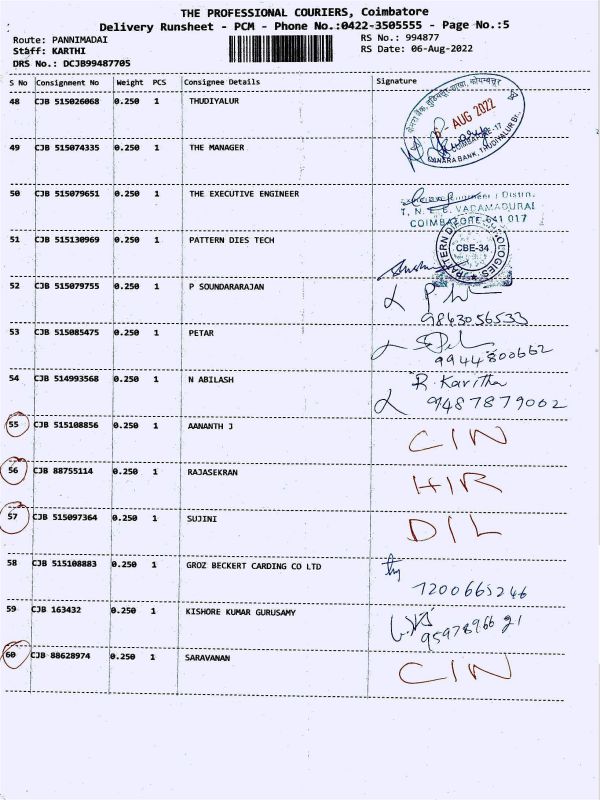 THE PROFESSIONAL COURIERS, Coimbatore
Delivery Runsheet - PCM - Phone No.:0422-3505555 - Page No.:5
Route: PANNIMADAI RS No.: 994877
Staff: KARTHI RS Date: 06-Aug-2022
DRS No.: DCJB99487705
S No Consignment No Weight PCS Consignee Details Signature
48 CJB 515026068 0.250 1 THUDIYALUR
AUG 2022
COIMBATORE-17
CANARA BANK, THUDIYALUR Br.
49 CJB 515074335 0.250 1 THE MANAGER
50 CJB 515079651 0.250 1 THE EXECUTIVE ENGINEER
T. N. E. B. VADAMADURAI
COIMBATORE-641 017
51 CJB 515130969 0.250 1 PATTERN DIES TECH
CBE-34
52 CJB 515079755 0.250 1 P SOUNDARARAJAN
9863056533
53 CJB 515085475 0.250 1 PETAR
9944800662
54 CJB 514993568 0.250 1 N ABILASH R. Kavitha
9487879002
55 CJB 515108856 0.250 1 AANANTH J CIN
56 CJB 88755114 0.250 1 RAJASEKRAN HIR
57 CJB 515097364 0.250 1 SUJINI DIL
58 CJB 515108883 0.250 1 GROZ BECKERT CARDING CO LTD
7200665246
59 CJB 163432 0.250 1 KISHORE KUMAR GURUSAMY
60 CJB 88628974 0.250 1 SARAVANAN CIN